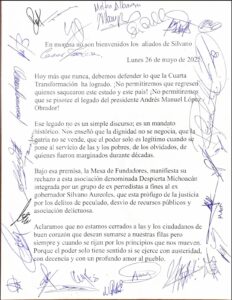 En morena no son bienvenidos los aliados de Silvano
Lunes 26 de mayo de 2025
Hoy más que nunca, debemos defender lo que la Cuarta
Transformación ha logrado. ¡No permitiremos que regresen
quienes saquearon este estado y este país! ¡No permitiremos
que se pisotee el legado del presidente Andrés Manuel López
Obrador!
Ese legado no es un simple discurso; es un mandato
histórico. Nos enseñó que la dignidad no se negocia, que la
patria no se vende, que el poder solo es legítimo cuando se
pone al servicio de las y los pobres, de los olvidados, de
quienes fueron marginados durante décadas.
Bajo esa premisa, la Mesa de Fundadores, manifiesta su
rechazo a esta asociación denominada Despierta Michoacán
integrada por un grupo de ex perredistas a fines al ex
gobernador Silvano Aureoles, que esta prófugo de la justicia
por los delitos de peculado, desvío de recursos públicos y
asociación delictuosa.
Aclaramos que no estamos cerrados a las y los ciudadanos de
buen corazón que desean sumarse a nuestras filas pero
siempre y cuando se rijan por los principios que nos mueven.
Porque el poder solo tiene sentido si se ejerce con austeridad,
con decencia y con un profundo amor al pueblo.